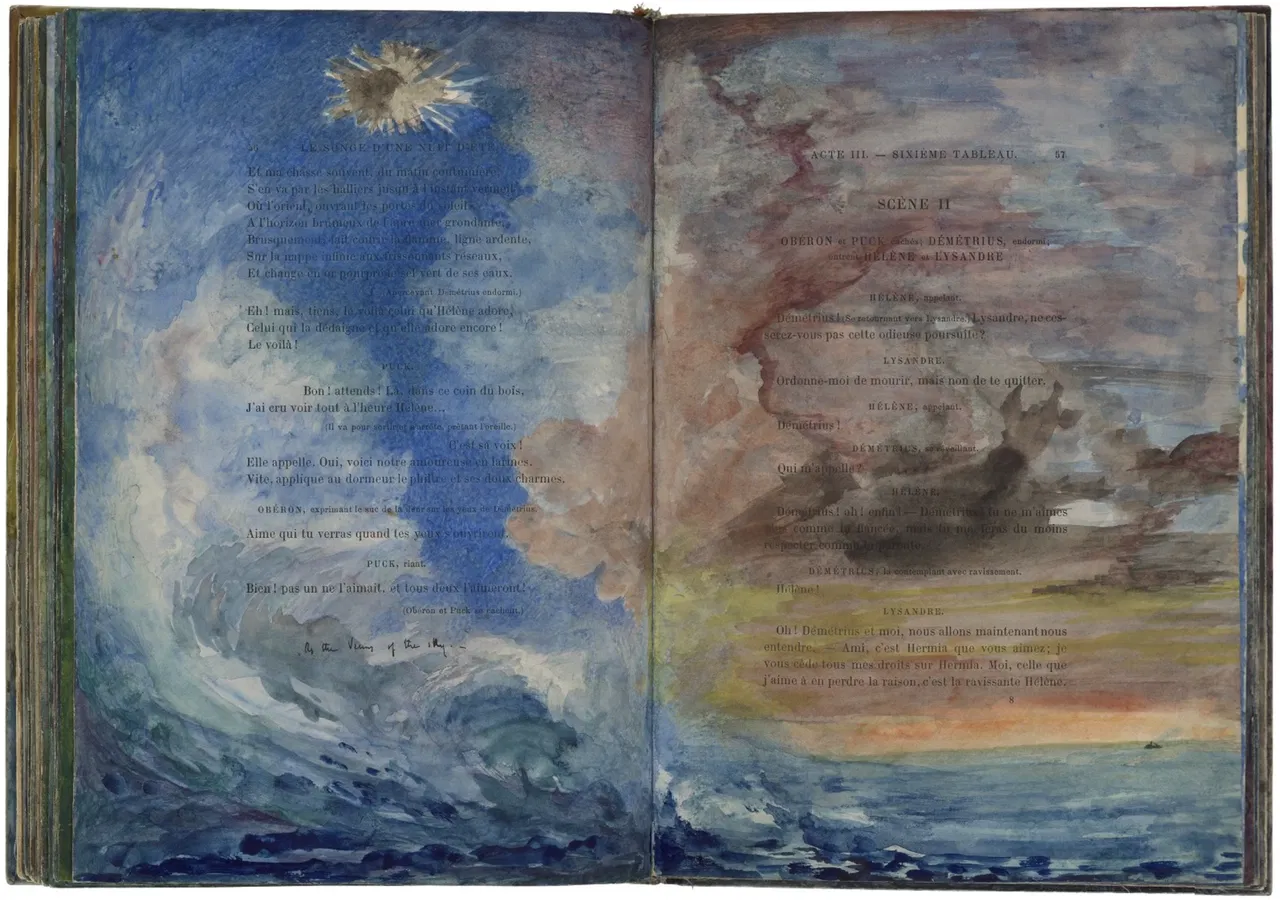 56 LE SONGE D'UNE NUIT D'ÉTÉ.
Et ma chasse souvent, du matin coutumière,
S'en va par les halliers jusqu'à l'instant vermeil
Où l'orient, ouvrant les portes du soleil
A l'horizon brumeux de l'âpre mer grondante,
Brusquement fait courir la flamme, ligne ardente,
Sur la nappe infinie aux frissonnants réseaux,
Et change en or pourpré le sel vert de ses eaux.
(Apercevant Démétrius endormi.)
Eh! mais, tiens, le voilà celui qu'Hélène adore,
Celui qui la dédaigne et qu'elle adore encore!
Le voilà!
PUCK.
Bon! attends! Là, dans ce coin du bois,
J'ai cru voir tout à l'heure Hélène...
(Il va pour sortir et s'arrête, prêtant l'oreille.)
C'est sa voix!
Elle appelle. Oui, voici notre amoureuse en larmes.
Vite, applique au dormeur le philtre et ses doux charmes.
OBÉRON, exprimant le suc de la fleur sur les yeux de Démétrius.
Aime qui tu verras quand tes yeux s'ouvriront.
PUCK, riant.
Bien! pas un ne l'aimait, et tous deux l'aimeront!
(Obéron et Puck se cachent.)
As the Views of the sky.—
ACTE III. — SIXIÈME TABLEAU. 57
SCÈNE II
OBÉRON et PUCK cachés; DÉMÉTRIUS, endormi;
entrent HÉLÈNE et LYSANDRE
HÉLÈNE, appelant.
Démétrius! (Se retournant vers Lysandre.) Lysandre, ne ces-
serez-vous pas cette odieuse poursuite?
LYSANDRE.
Ordonne-moi de mourir, mais non de te quitter.
HÉLÈNE, appelant.
Démétrius!
DÉMÉTRIUS, s'éveillant.
Qui m'appelle?
HÉLÈNE.
Démétrius! ah! enfin! — Démétrius, tu ne m'aimes
pas comme ta fiancée, mais tu me feras du moins
respecter comme ta parente.
DÉMÉTRIUS, la contemplant avec ravissement.
Hélène!
LYSANDRE.
Oh! Démétrius et moi, nous allons maintenant nous
entendre. — Ami, c'est Hermia que vous aimez; je
vous cède tous mes droits sur Hermia. Moi, celle que
j'aime à en perdre la raison, c'est la ravissante Hélène.
8